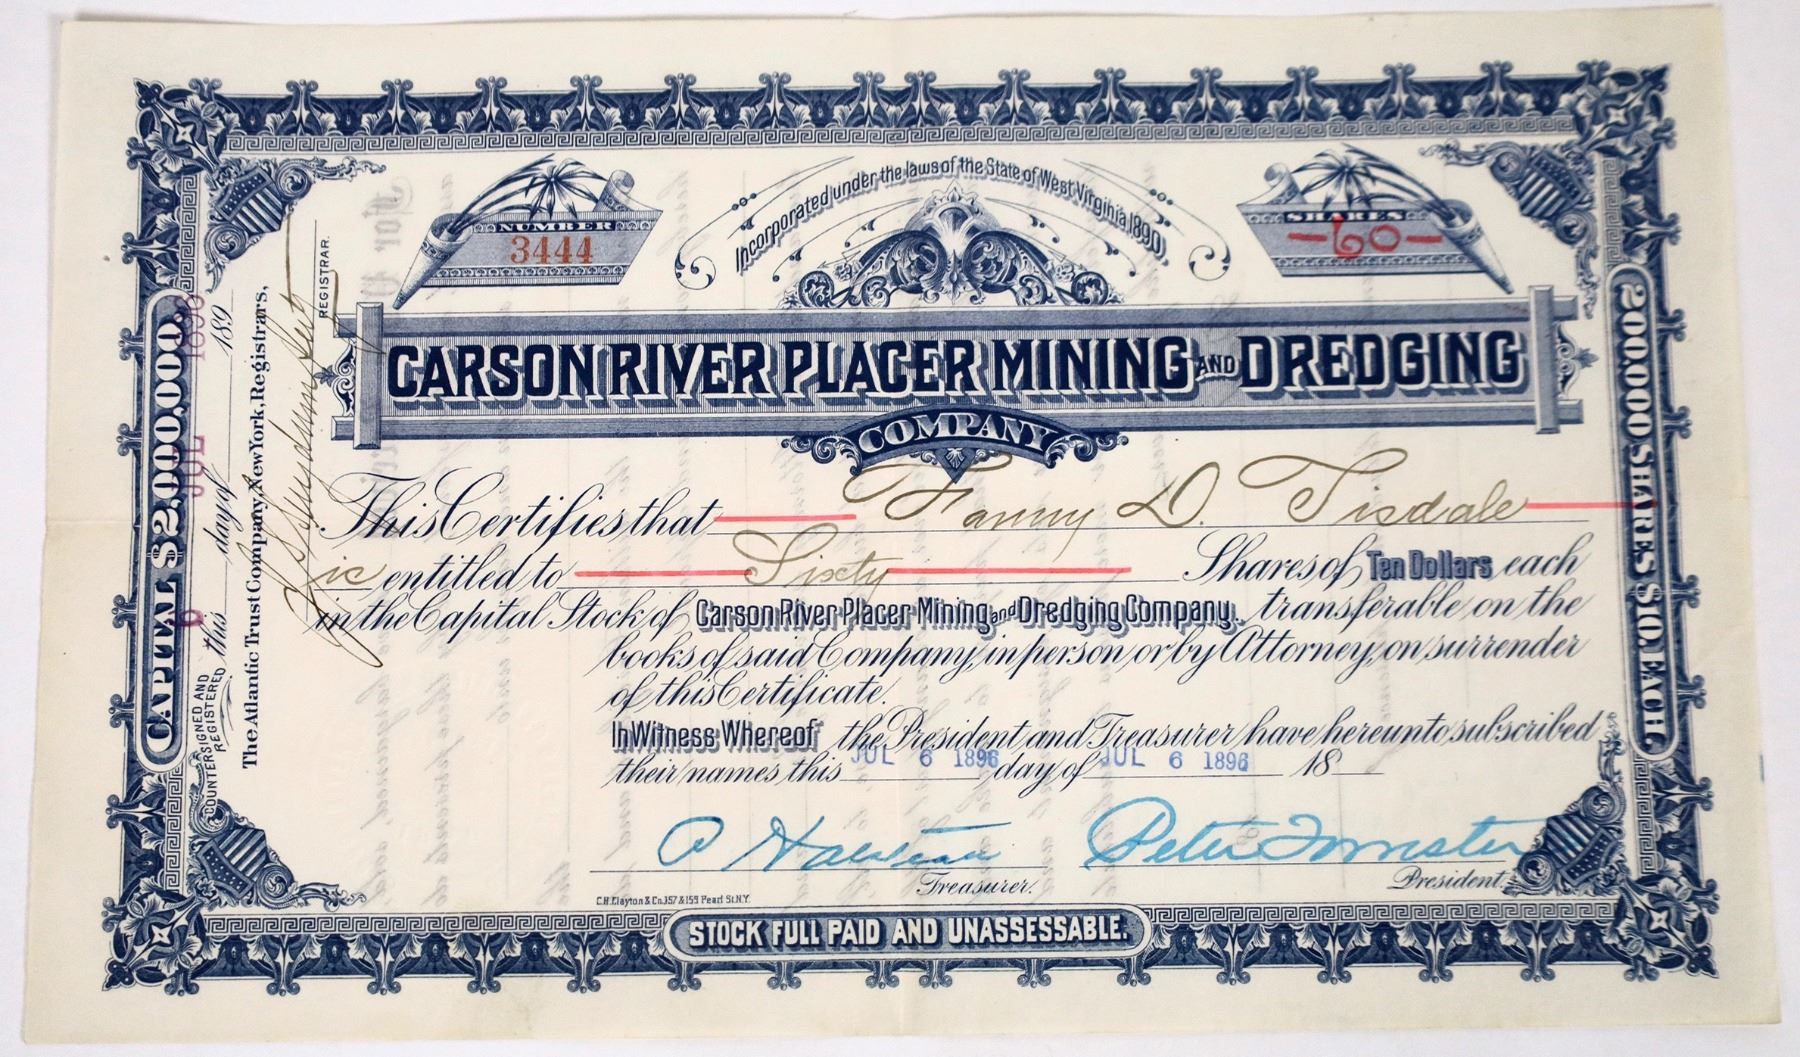 Incorporated under the laws of the State of West Virginia 1890.
NUMBER
3444
SHARES
—60—
CARSON RIVER PLACER MINING AND DREDGING
COMPANY
This Certifies that Fanny D. Tisdale
is entitled to Sixty Shares of Ten Dollars each
in the Capital Stock of Carson River Placer Mining and Dredging Company, transferable on the
books of said Company, in person or by Attorney, on surrender
of this Certificate.
In Witness Whereof the President and Treasurer have hereunto subscribed
their names this JUL 6 1896 day of JUL 6 1896 18
Peter Forrester
Treasurer.
President.
C.H. Clayton & Co. 157 & 159 Pearl St. N.Y.
STOCK FULL PAID AND UNASSESSABLE.
CAPITAL $2,000,000.
200,000 SHARES $10. EACH.
COUNTERSIGNED AND
REGISTERED this 6 day of JUL 1896 189
The Atlantic Trust Company, New York, Registrars,
REGISTRAR.